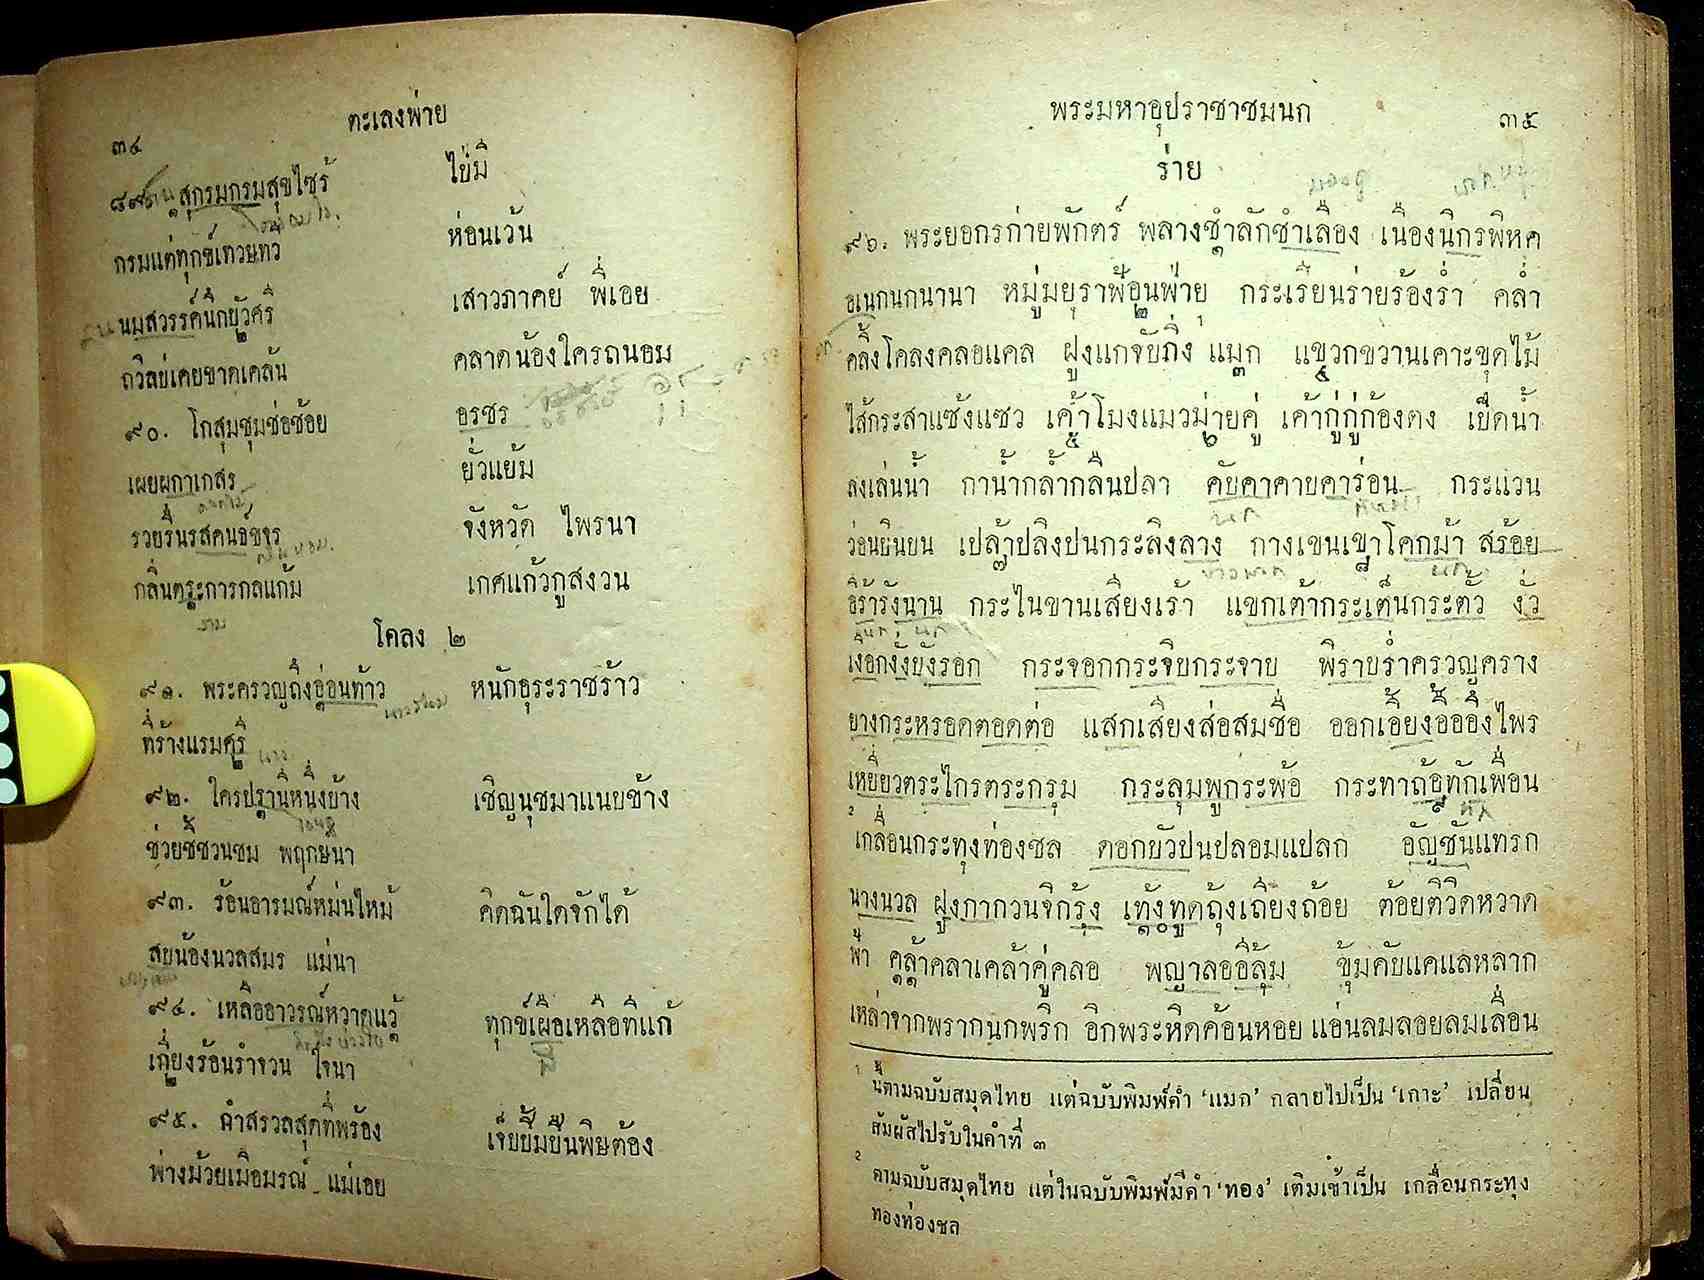 ๓๔
ตะเลงพ่าย
๘๙. สุกรมกรมสุขไซร้ ไป่มี
กรมแต่ทุกข์เทวษทวี ห่อนเว้น
นมสวรรค์นึกยัวศรี เสาวภาคย์ พี่เอย
ถวิลย์เคยขาดเคล้น คลาดน้องใครถนอม
๙๐. โกสุมชุมช่อช้อย อรชร
เผยผกาเกสร ยั่วแย้ม
รวยรื่นรสคนธ์ขจร จังหวัด ไพรนา
กลิ่นตระการกลแก้ม เกศแก้วกูสงวน
โคลง ๒
๙๑. พระครวญถึงอ่อนท้าว หนักธุระราชร้าว
ที่ร้างแรมศรี
๙๒. ใครปรานิหนึ่งย้าง เชิญนุชมาแนบข้าง
ช่วยชี้ชวนชม พฤกษนา
๙๓. ร้อนอารมณ์หม่นไหม้ คิดฉันใดจักได้
สบน้องนวลสมร แม่นา
๙๔. เหลืออาวรณ์หวาดแว้ ทุกข์เผือเหลือที่แก้
เถี่ยงร้อนรำจวน ใจนา
๙๕. กำสรวลสุดที่พร้อง เจ็บยิ้มยืนพิษต้อง
พ่างม้วยเมือมรณ์ แม่เอย
พระมหาอุปราชาชมนก
๓๕
ร่าย
๙๖. พระยอกรก่ายพักตร์ พลางชำลักชำเลือง เนืองนิกรพิหค
อเนกนกนานา หมู่มยุราฟ้อนฝ่าย กระเรียนร่ายร้องร่ำ คล่ำ
คลิ้งโคลงคลอแคล ฝูงแกจับกิ่ง¹ แมก แขวกขวานเคาะขุดไม้
ไส้กระสาแซ้งแซว เค้าโมงแมวม่ายคู่ เค้ากู่กู่ก้องดง เป็ดน้ำ
ลงเล่นน้ำ กาน้ำกล้ำกลืนปลา คับคาคายคาร่อน กระแวน
ว่อนยินยน เปล้าปลิงปนกระลิงลาง กางเขนเขาโคกม้า สร้อย
ธิร้ารังนาน กระไนขานเสียงเร้า แขกเต้ากระเต็นกระตั้ว งั่ว
เงือกงั่งยังรอก กระจอกกระจิบกระจาบ พิราบร่ำครวญคราง
ยางกระหรอดตอดต่อ แสกเสียงส่อสมชื่อ ออกเอี้ยงอื้ออึงไพร
เหยี่ยวตระไกรตระกรุม กระลุมพูกระพ้อ กระทาถ้อทักเพื่อน
² เกลื่อนกระทุงท่องชล ดอกบัวปนปลอมแปลก อัญชันแทรก
นางนวล ฝูงกากวนจิกรุ้ง เท้งทูดถุ้งเถียงถ้อย ต้อยตีวิดหวาด
ฟ้า คล้าคลาเคล้าคู่คลอ พญาลออิลุ้ม ขุ้มคับแคแลหลาก
เหล่าจากพรากนกพริก อีกพระหิดค้อนหอย แอ่นลมลอยลมเลื่อน
¹ นี้ตามฉบับสมุดไทย แต่ฉบับพิมพ์คำ 'แมก' กลายไปเป็น 'เกาะ' เปลี่ยน
สัมผัสไปรับในคำที่ ๓
² ตามฉบับสมุดไทย แต่ในฉบับพิมพ์มีคำ 'ทอง' เติมเข้าเป็น เกลื่อนกระทุง
ทองท่องชล